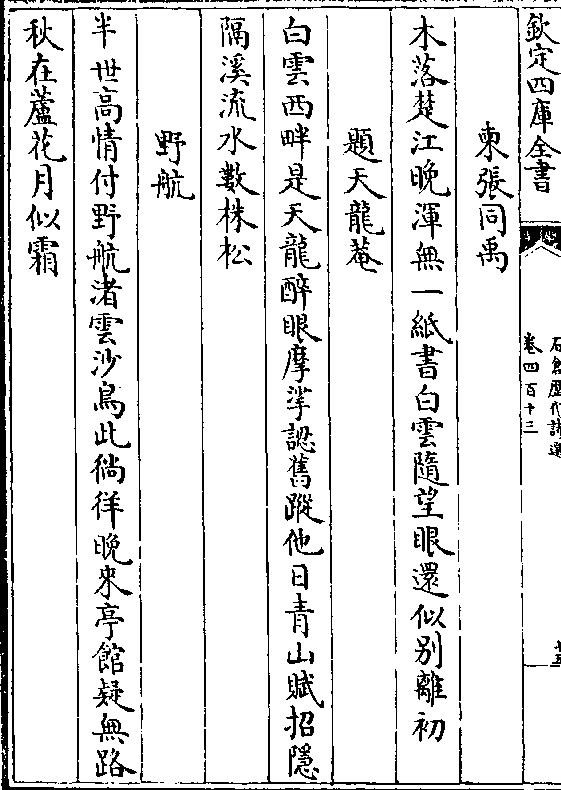 欽定四庫全書
石倉歴代詩選
卷四百十三
柬張同禹
木落楚江晩渾無一紙書白雲隨望眼還似别離初
題天龍菴
白雲西畔是天龍醉眼摩挲認舊蹤他日青山賦招隱
隔溪流水數株松
野航
半世高情付野航渚雲沙鳥此徜徉晩來亭館疑無路
秋在蘆花月似霜